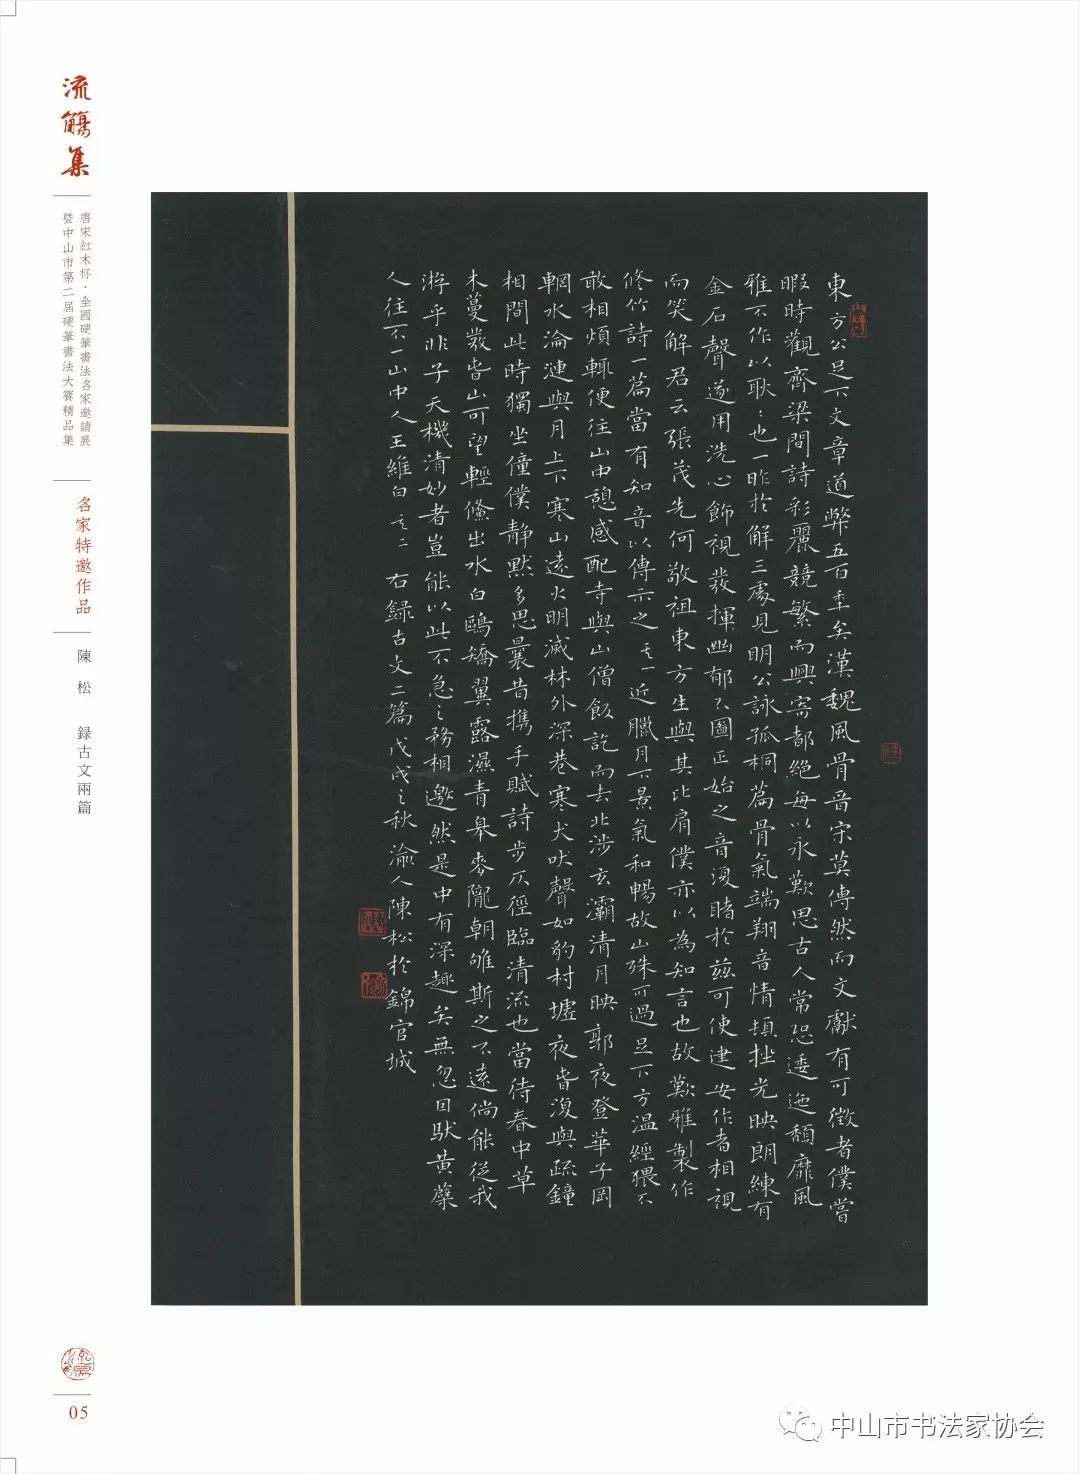 流觴集
唐宋紅木杯·全國硬筆書法名家邀請展
暨中山市第二届硬筆書法大賽精品集
名家特邀作品
陳松 録古文兩篇
東方公足下文章道弊五百年矣漢魏風骨晋宋莫傳然而文獻有可徵者僕嘗
暇時觀齊梁間詩彩麗競繁而興寄都絕每以永歎思古人常恐逶迤頹靡風
雅不作以耿〻也一昨於解三處見明公詠孤桐篇骨氣端翔音情頓挫光映朗練有
金石聲遂用洗心飾視發揮幽郁不圖正始之音復睹於兹可使建安作者相視
而笑解君云張茂先何敬祖東方生與其比肩僕亦以為知言也故歎雅製作
修竹詩一篇當有知音以傳示之 其一 近臘月下景氣和暢故山殊可過足下方温經猥不
敢相煩輒便往山中憩感配寺與山僧飯訖而去北涉玄灞清月映郭夜登華子岡
輞水淪漣與月上下寒山遠火明滅林外深巷寒犬吠聲如豹村墟夜舂復與疏鐘
相間此時獨坐僮僕静默多思曩昔携手賦詩步仄徑臨清流也當待春中草
木蔓發春山可望輕鯈出水白鷗矯翼露濕青皋麥隴朝雊斯之不遠倘能從我
游乎非子天機清妙者豈能以此不急之務相邀然是中有深趣矣無忽因馱黄蘗
人往不一山中人王維白 其二 右録古文二篇戊戌之秋渝人陳松於錦官城
05
中山市书法家协会